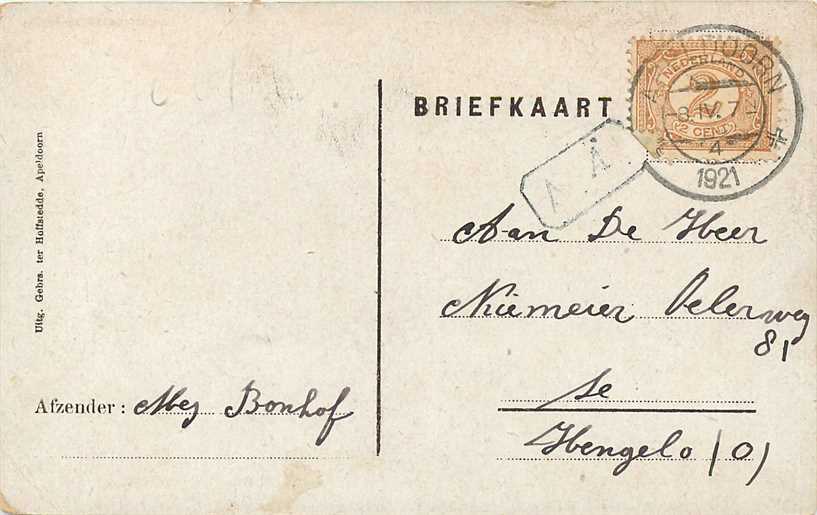 BRIEFKAART
NEDERLAND
2
2 CENT
8.IV. 7-
4
1921
Aan De Heer
Niemeier Oelerweg
81
te
Hengelo (O)
Afzender: Mej Bonhof
Uitg. Gebrs. ter Hoffstedde, Apeldoorn